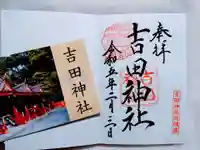 奉拝
吉田神社
令和五年二月三日
吉田神社